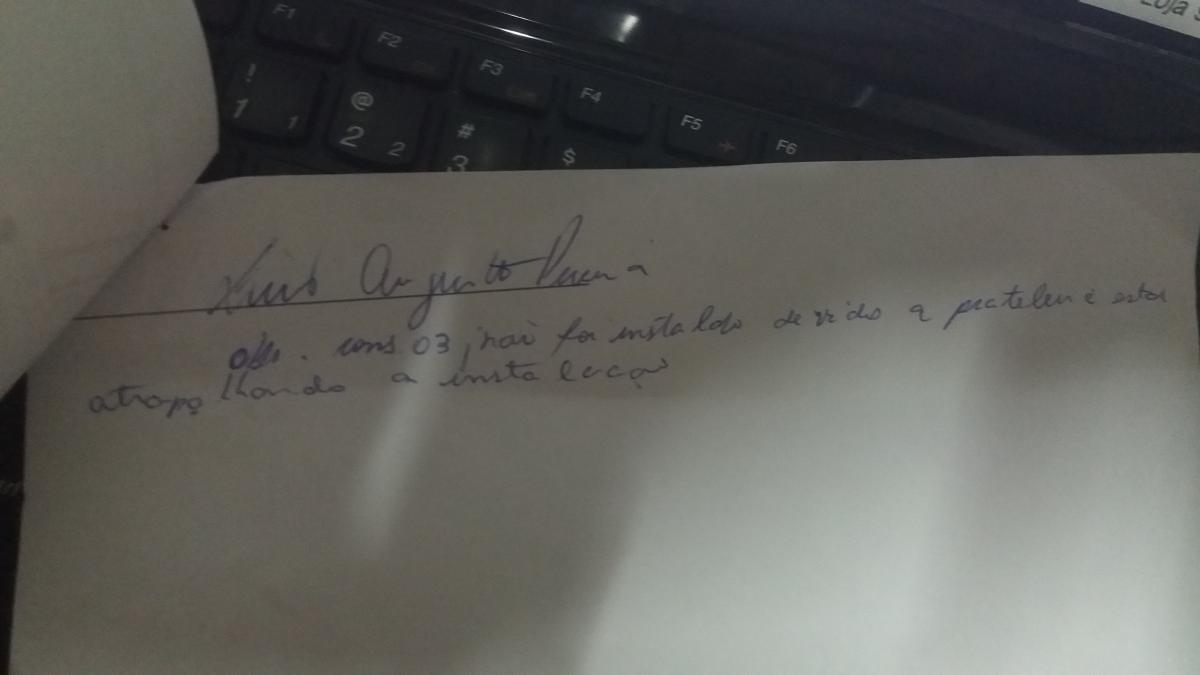 Loja
F1
F2
F3
F4
F5
F6
! 1 1
@ 2 2
# 3
$
Luis Augusto
obs. cons 03, nãi foi instaldo devido a estar
atrapalhando a instalaçaõ